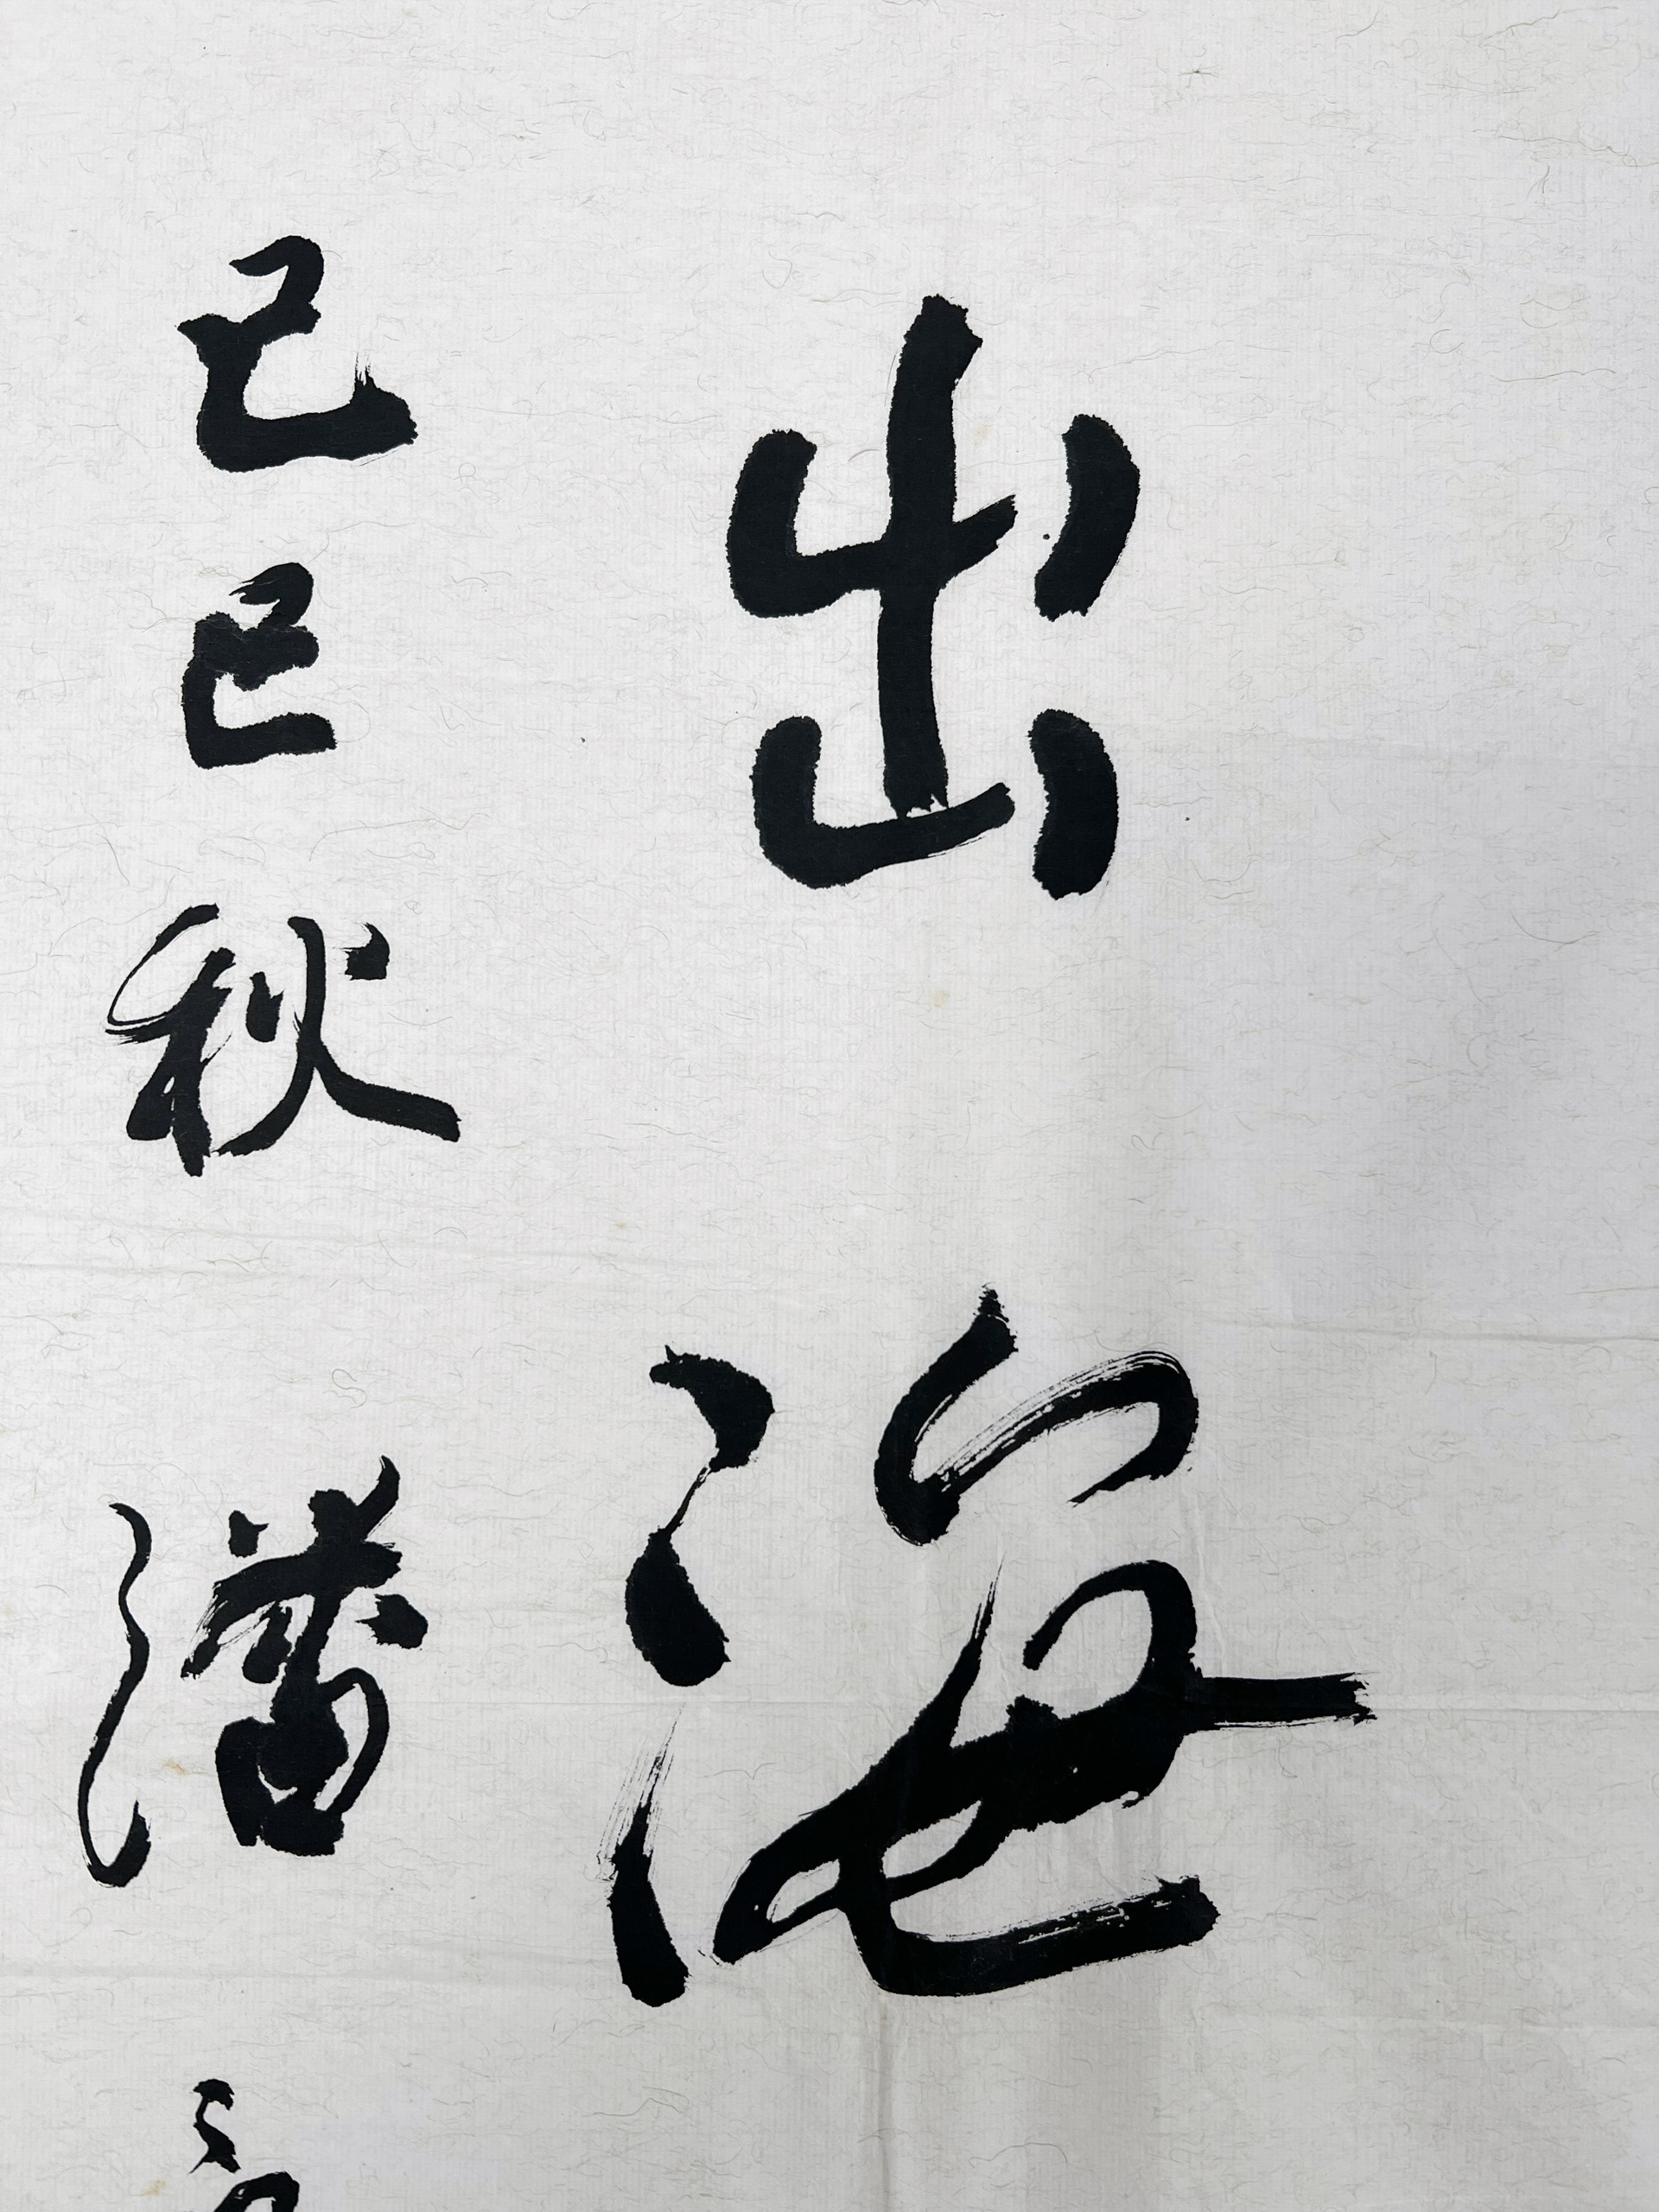 出海
己巳秋潘